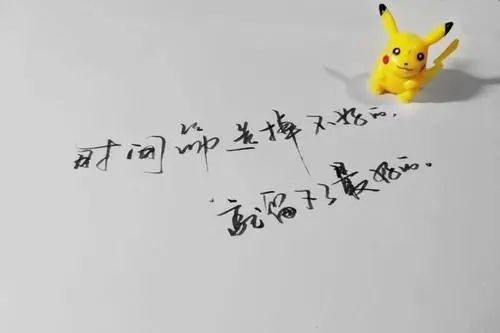 时间筛选掉不好的，
就留下了最好的。